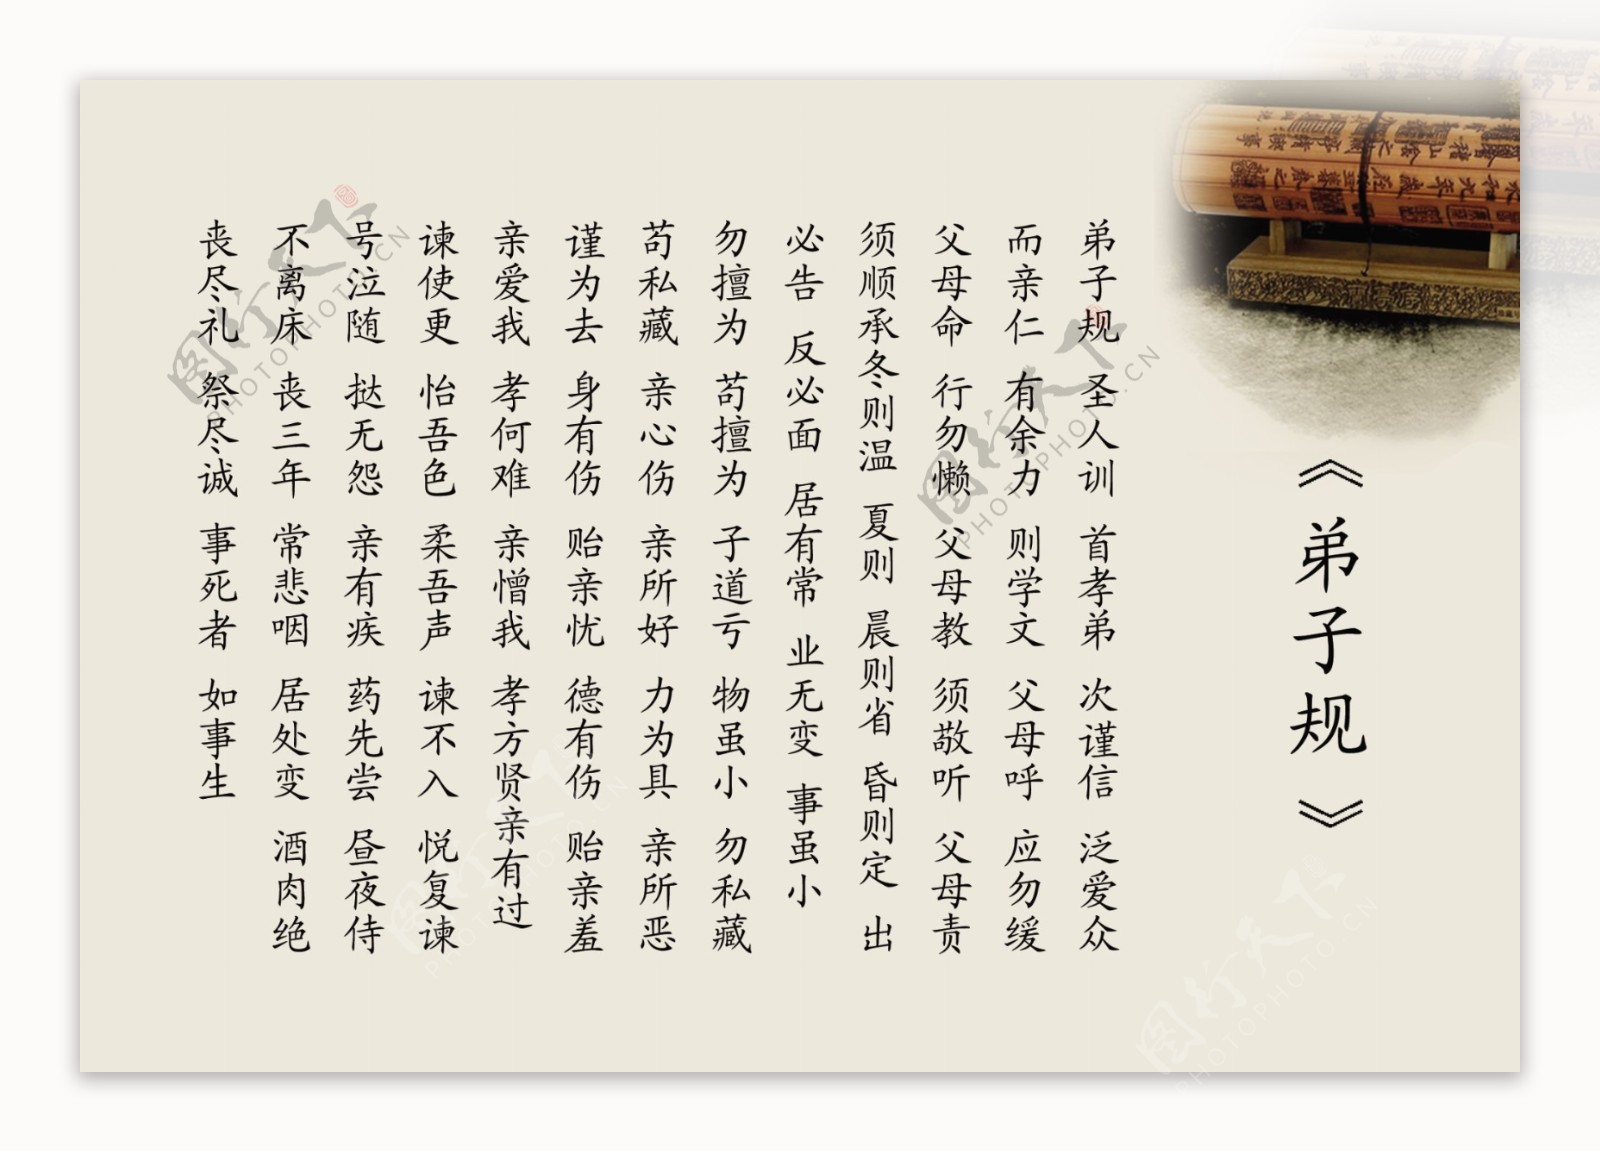 《弟子规》
弟子规 圣人训 首孝弟 次谨信 泛爱众
而亲仁 有余力 则学文 父母呼 应勿缓
父母命 行勿懒 父母教 须敬听 父母责
须顺承冬则温 夏则 晨则省 昏则定 出
必告 反必面 居有常 业无变 事虽小
勿擅为 苟擅为 子道亏 物虽小 勿私藏
苟私藏 亲心伤 亲所好 力为具 亲所恶
谨为去 身有伤 贻亲忧 德有伤 贻亲羞
亲爱我 孝何难 亲憎我 孝方贤亲有过
谏使更 怡吾色 柔吾声 谏不入 悦复谏
号泣随 挞无怨 亲有疾 药先尝 昼夜侍
不离床 丧三年 常悲咽 居处变 酒肉绝
丧尽礼 祭尽诚 事死者 如事生
图行天下
PHOTOPHOTO.CN
图行天下
PHOTOPHOTO.CN
图行天下
PHOTOPHOTO.CN
图行天下
PHOTOPHOTO.CN